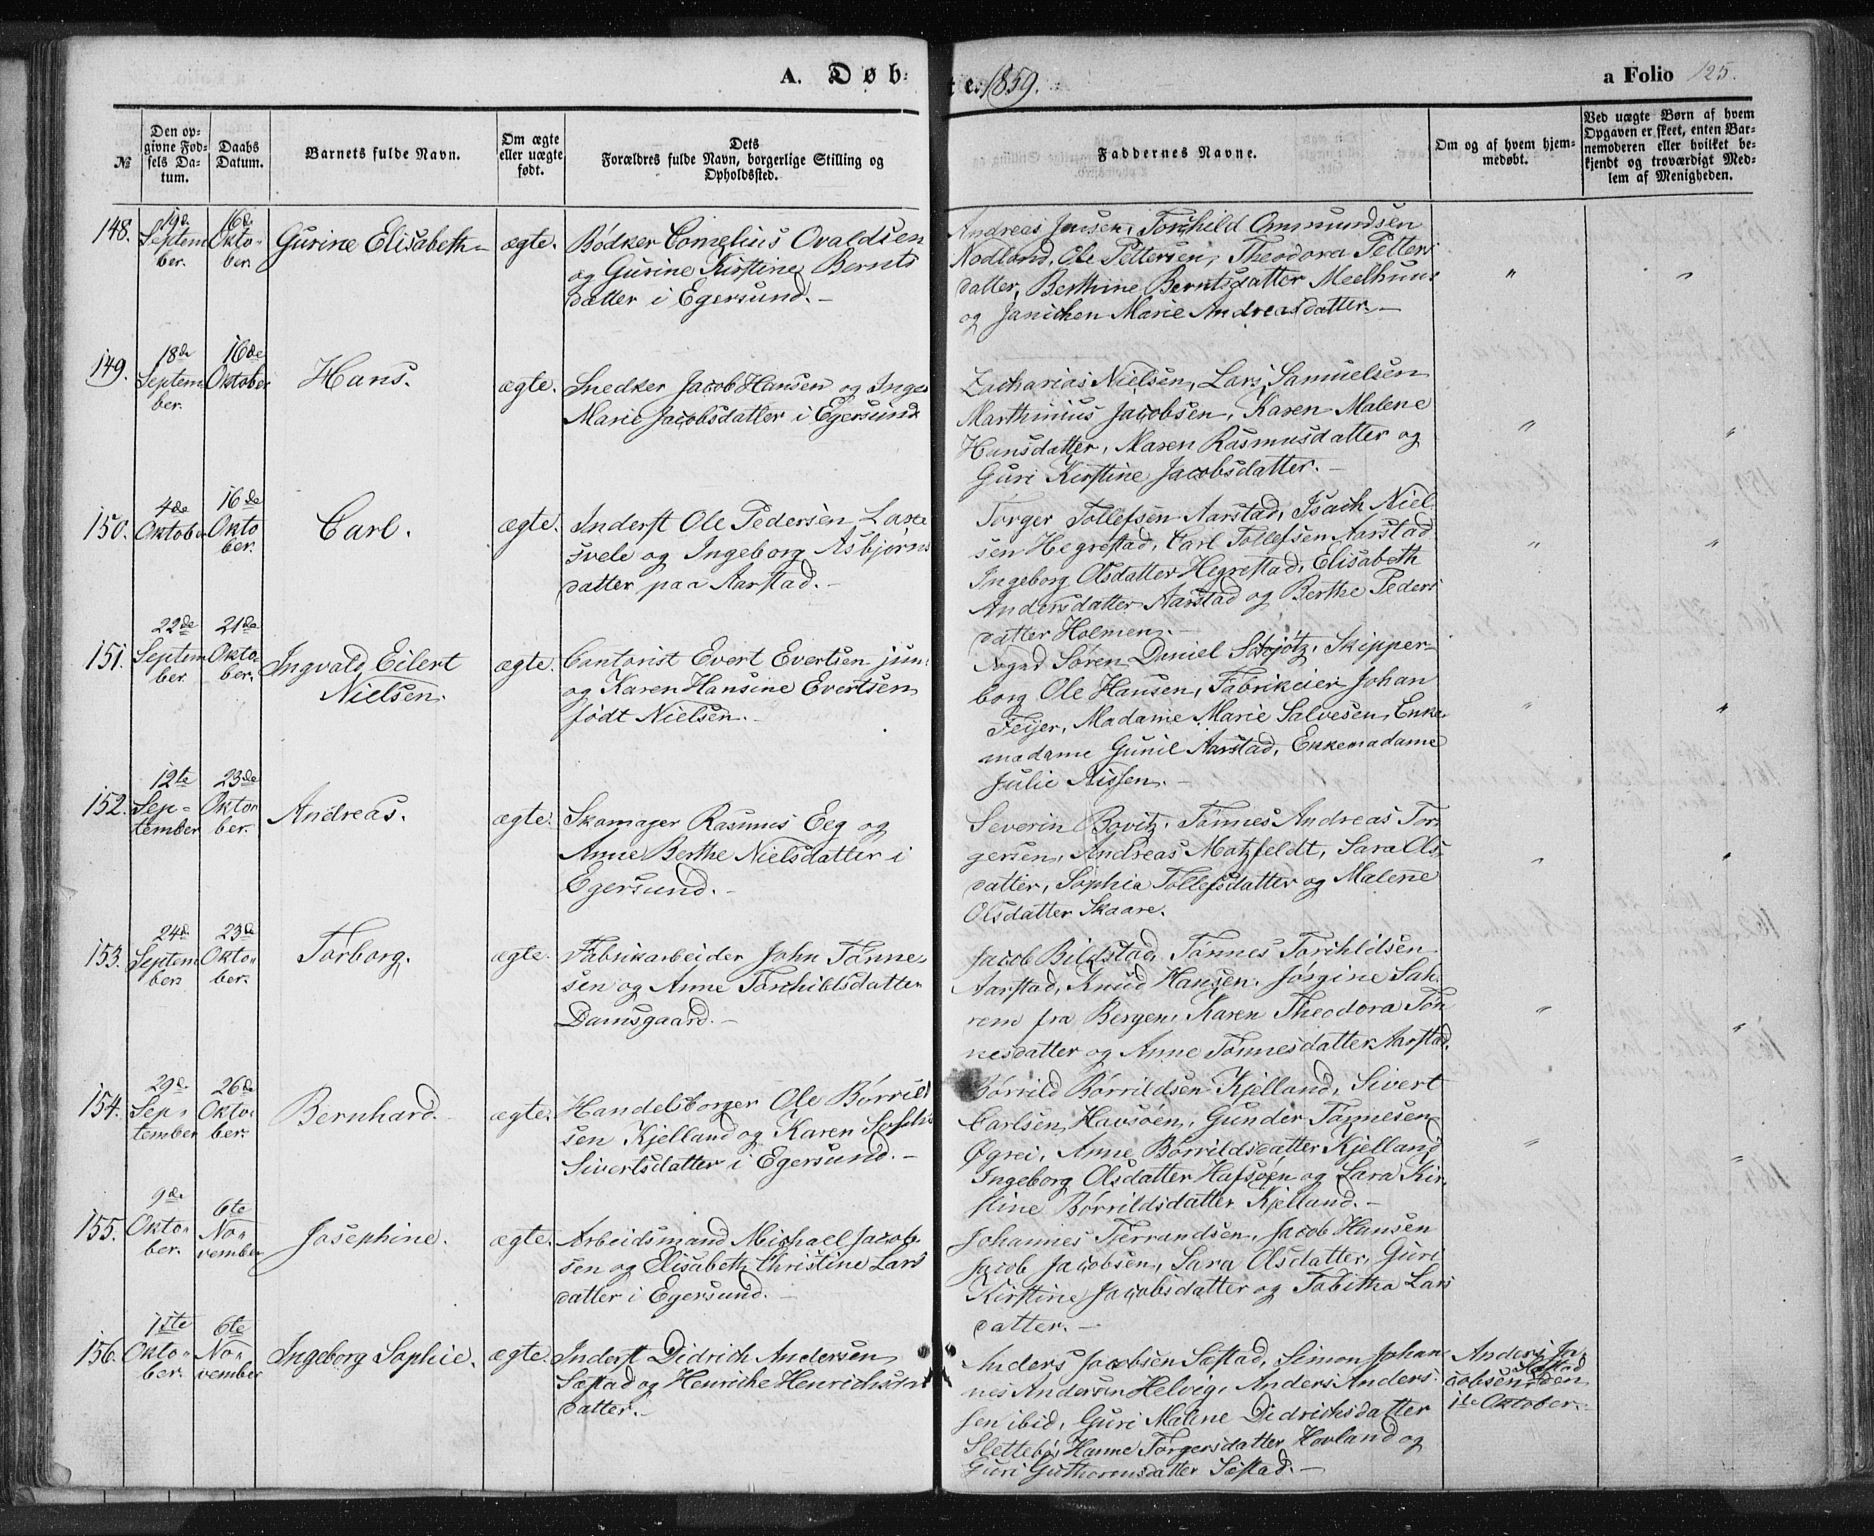 A. Døb-
te. 1859.
a Folio 125.
№
Den op-
givne Fød-
sels Da-
tum.
Daabs
Datum.
Barnets fulde Navn.
Om ægte
eller uægte
født.
Dets
Forældres fulde Navn, borgerlige Stilling og
Opholdssted.
Faddernes Navne.
Om og af hvem hjem-
medøbt.
Ved uægte Børn af hvem
Opgaven er skeet, enten Bar-
nemoderen eller hvilket be-
kjendt og troværdigt Med-
lem af Menigheden.
148.
19de
Septem
ber.
16de
Okto-
ber.
Gurine Elisabeth
ægte.
Bødker Cornelius Ovaldsen
og Gurine Kirstine Bernts
datter i Egersund.-
Andreas Jensen, Torchild Ommundsen
Nodland, Ole Pettersen, Theodora Petters
datter, Berthine Berntsdatter Meelhuus
og Janichen Marie Andreasdatter.-
"
"
149.
18de
Septem
ber.
16de
Oktober
Hans.
ægte.
Snedker Jacob Hansen og Inge
Marie Jacobsdatter i Egersund
Zacharias Nielsen, Lars Samuelsen
Marthinius Jacobsen, Karen Malene
Hansdatter, Maren Rasmusdatter og
Guri Kirstine Jacobsdatter.-
"
"
150.
4de
Oktober
16de
Okto
ber.
Carl.
ægte.
Inderst Ole Pedersen Laxe
svele og Ingeborg Asbjørns
datter paa Aarstad.-
Torger Tollefsen Aarstad, Isach Niel-
sen Hegrestad, Carl Tollefsen Aarstad
Ingeborg Olsdatter Hegrestad, Elisabeth
Andersdatter Aarstad og Berthe Peders
datter Holmen.-
"
"
151.
22de
Septem
ber.
21de
Okto-
ber.
Ingvald Eilert
Nielsen.
ægte.
Cantorist Evert Evertsen jun.
og Karen Hansine Evertsen
født Nielsen.-
Søren Daniel Schjøtz, Skipper
borg Ole Hansen, Fabrikeier Johan
Feyer, Madame Marie Salvesen, Enke
madame Gunil Aarstad, Enkemadame
Julie Nissen.-
"
"
152.
12te
Sep-
tember
23de
Okto-
ber.
Andreas.
ægte.
Skomager Rasmus Eeg og
Anne Berthe Nielsdatter i
Egersund.-
Severin Bovitz, Tønnes Andreas Tor-
gersen, Andreas Motzfeldt, Sara Ols-
datter, Sophia Tollefsdatter og Malene
Olsdatter Skaare.
"
"
153.
24de
Septem
ber.
23de
Okto-
ber.
Torborg.
ægte.
Fabrikarbeider John Tønne-
sen og Anne Torchildsdatter
Damsgaard.-
Jacob Bildstad, Tønnes Torchildsen
Aarstad, Knud Hansen, Jørgine Sah-
rem fra Bergen, Karen Theodora Tøn
nesdatter og Anne Tønnesdatter Aarstad.
"
"
154.
29de
Sep-
tember
26de
Okto-
ber.
Bernhard.
ægte.
Handelsborger Ole Børrild
sen Kjelland og Karen Sophie
Sivertsdatter i Egersund.-
Børrild Børrildsen Kjelland, Sivert
Carlsen Havsøen, Gunder Tønnesen
Øgrei, Anne Børrildsdatter Kjelland
Ingeborg Olsdatter Hafsøen og Lara Kir-
stine Børrildsdatter Kjelland.-
"
"
155.
9de
Okto-
ber.
6te
No-
vember
Josephine.
ægte.
Arbeidsmand Michael Jacob
sen og Elisabeth Christine Lars
datter i Egersund.-
Johannes Tjerrandsen, Jacob Hansen
Jacob Jacobsen, Sara Olsdatter, Guri
Kirstine Jacobsdatter og Tabitha Lars
datter.-
156.
1ste
Okto-
ber.
6te
No-
vember
Ingeborg Sophie.
ægte.
Inderst Didrich Andersen
Sæstad og Henriche Henrichs
datter.-
Anders Jacobsen Sæstad, Simon Johan
nes Andersen Helvig, Anders Anders-
sen ibid, Guri Malene Didrichsdatter
Slettebø, Hanne Torgersdatter Hovland og
Guri Guthormsdatter Sæstad.-
Anders Ja-
cobsen Sæstad den
1ste Oktober.